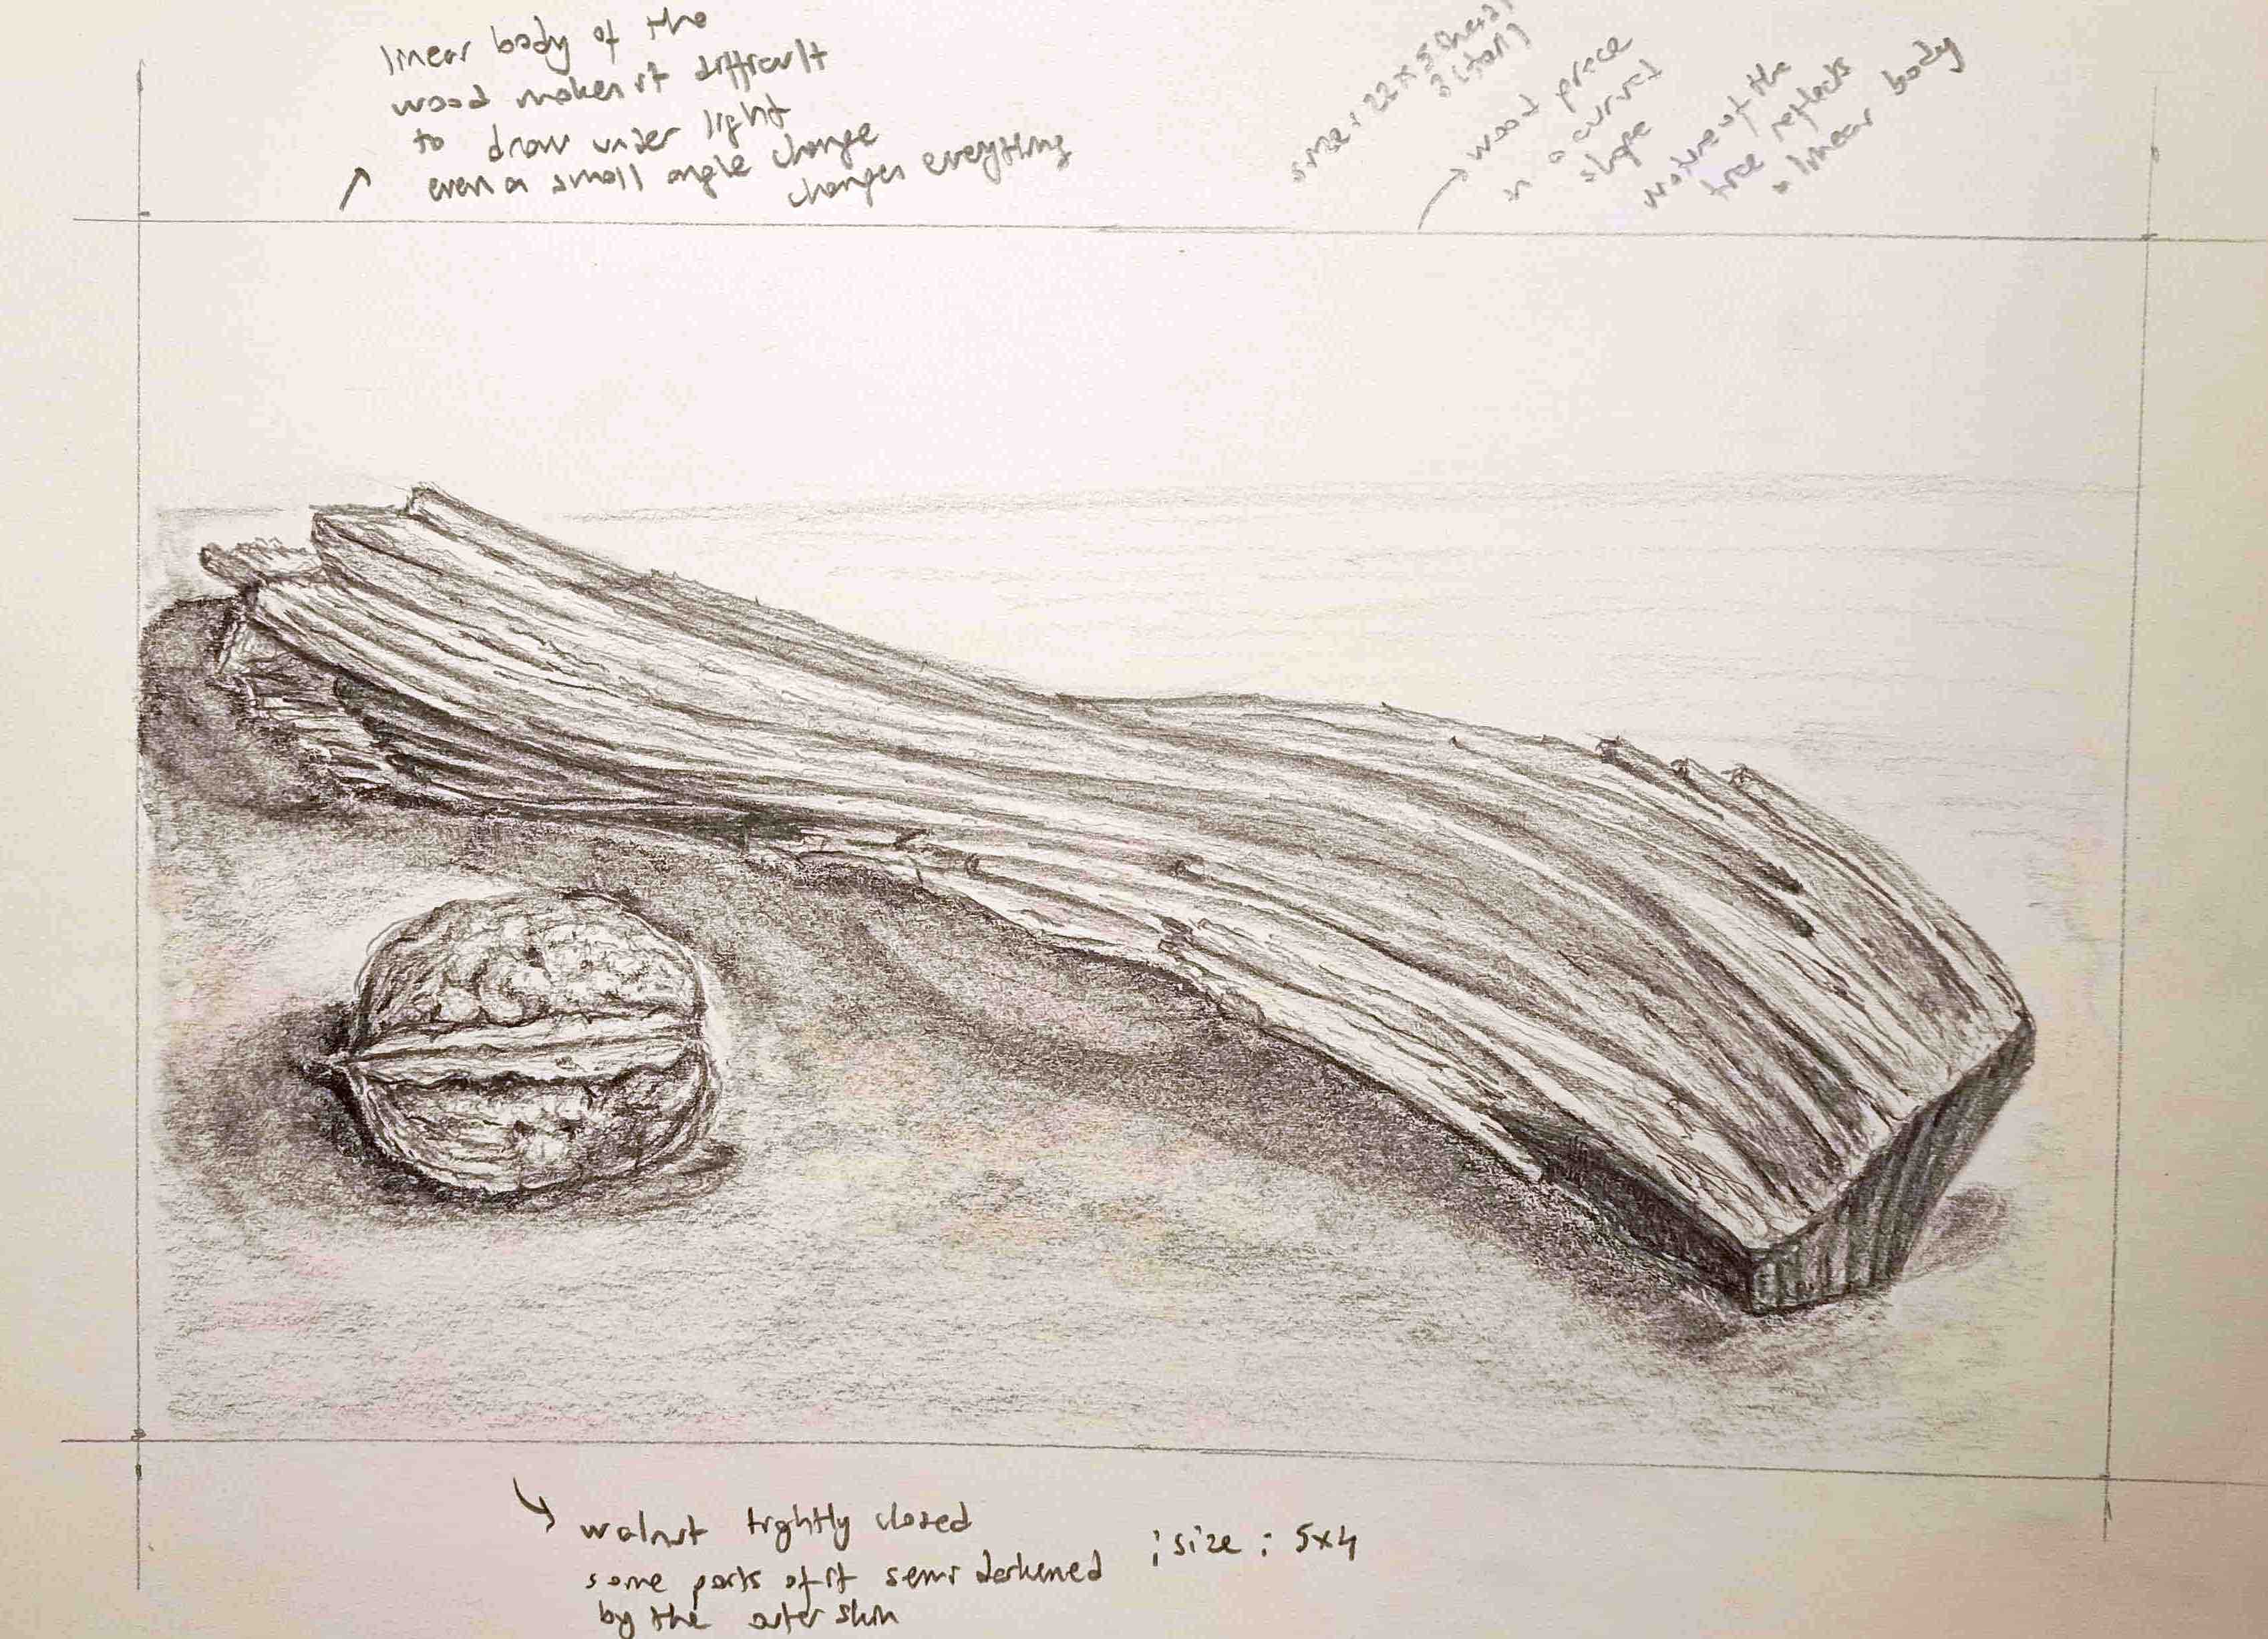 linear body of the
wood makes it difficult
to draw under light
even a small angle change
changes everything
size : 22 x 5 (head)
3 (tail)
wood piece
in a curved
shape
nature of the
tree reflects
a linear body
walnut tightly closed
some parts of it semi darkened
by the outer skin
; size : 5x4